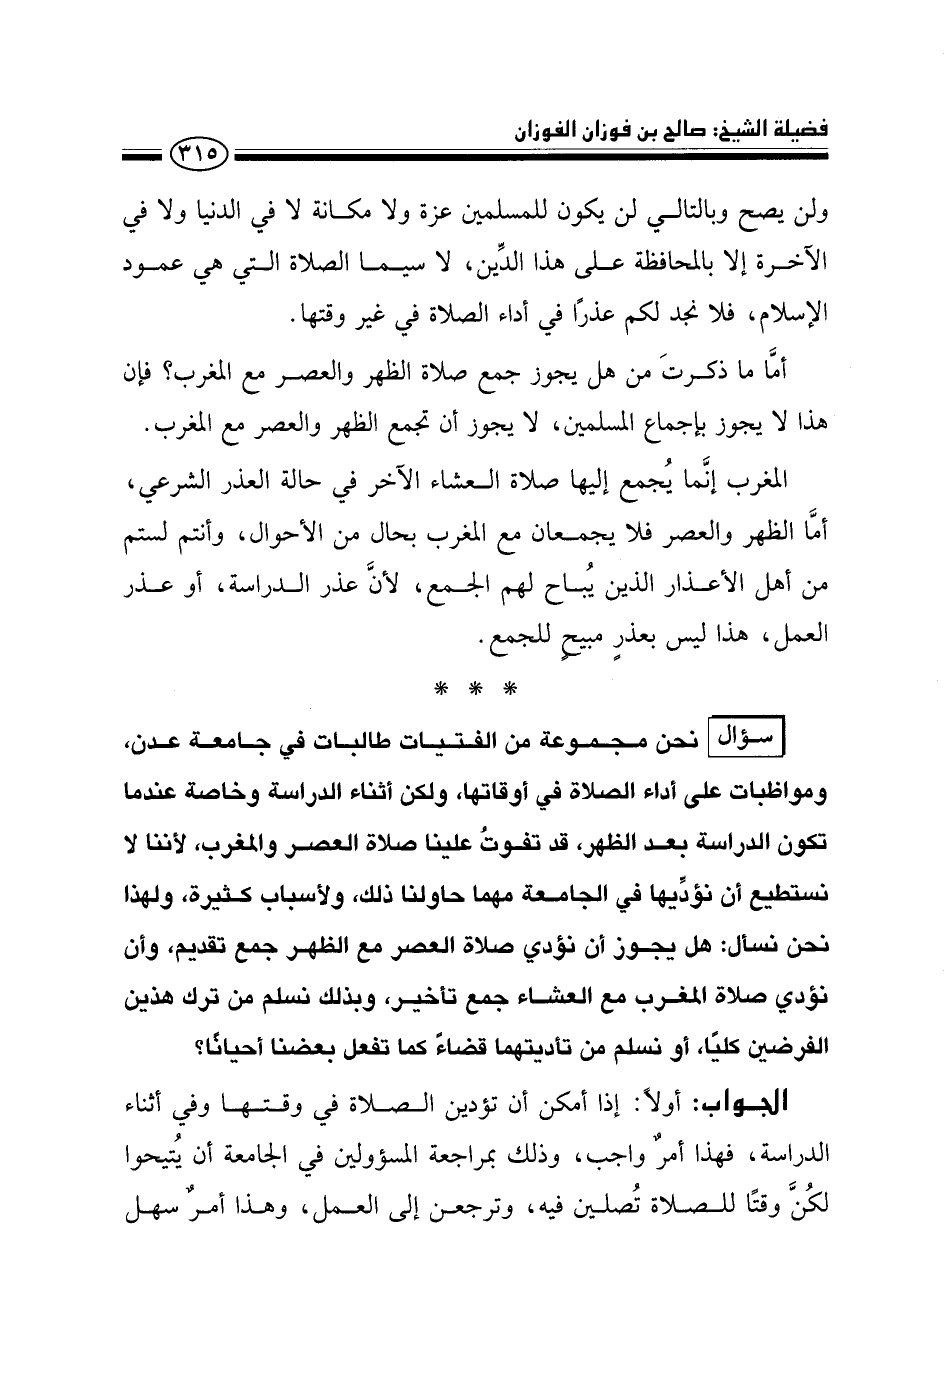 فضيلة الشيخ: صالح بن فوزان الفوزان
٣١٥
ولن يصح وبالتالي لن يكون للمسلمين عزة ولا مكانة لا في الدنيا ولا في
الآخرة إلا بالمحافظة على هذا الدِّين، لا سيما الصلاة التي هي عمود
الإسلام، فلا نجد لكم عذرًا في أداء الصلاة في غير وقتها.
أمَّا ما ذكرتَ من هل يجوز جمع صلاة الظهر والعصر مع المغرب؟ فإن
هذا لا يجوز بإجماع المسلمين، لا يجوز أن تجمع الظهر والعصر مع المغرب.
المغرب إنَّما يُجمع إليها صلاة العشاء الآخر في حالة العذر الشرعي،
أمَّا الظهر والعصر فلا يجمعان مع المغرب بحال من الأحوال، وأنتم لستم
من أهل الأعذار الذين يُباح لهم الجمع، لأنَّ عذر الدراسة، أو عذر
العمل، هذا ليس بعذرٍ مبيحٍ للجمع.
* * *
سؤال نحن مجموعة من الفتيات طالبات في جامعة عدن،
ومواظبات على أداء الصلاة في أوقاتها، ولكن أثناء الدراسة وخاصة عندما
تكون الدراسة بعد الظهر، قد تفوتُ علينا صلاة العصر والمغرب، لأننا لا
نستطيع أن نؤدِّيها في الجامعة مهما حاولنا ذلك، ولأسباب كثيرة، ولهذا
نحن نسأل: هل يجوز أن نؤدي صلاة العصر مع الظهر جمع تقديم، وأن
نؤدي صلاة المغرب مع العشاء جمع تأخير، وبذلك نسلم من ترك هذين
الفرضين كليًا، أو نسلم من تأديتهما قضاءً كما تفعل بعضنا أحيانًا؟
الجواب: أولاً: إذا أمكن أن تؤدين الصلاة في وقتها وفي أثناء
الدراسة، فهذا أمرٌ واجب، وذلك بمراجعة المسؤولين في الجامعة أن يُتيحوا
لكُنَّ وقتًا للصلاة تُصلين فيه، وترجعن إلى العمل، وهذا أمرٌ سهل